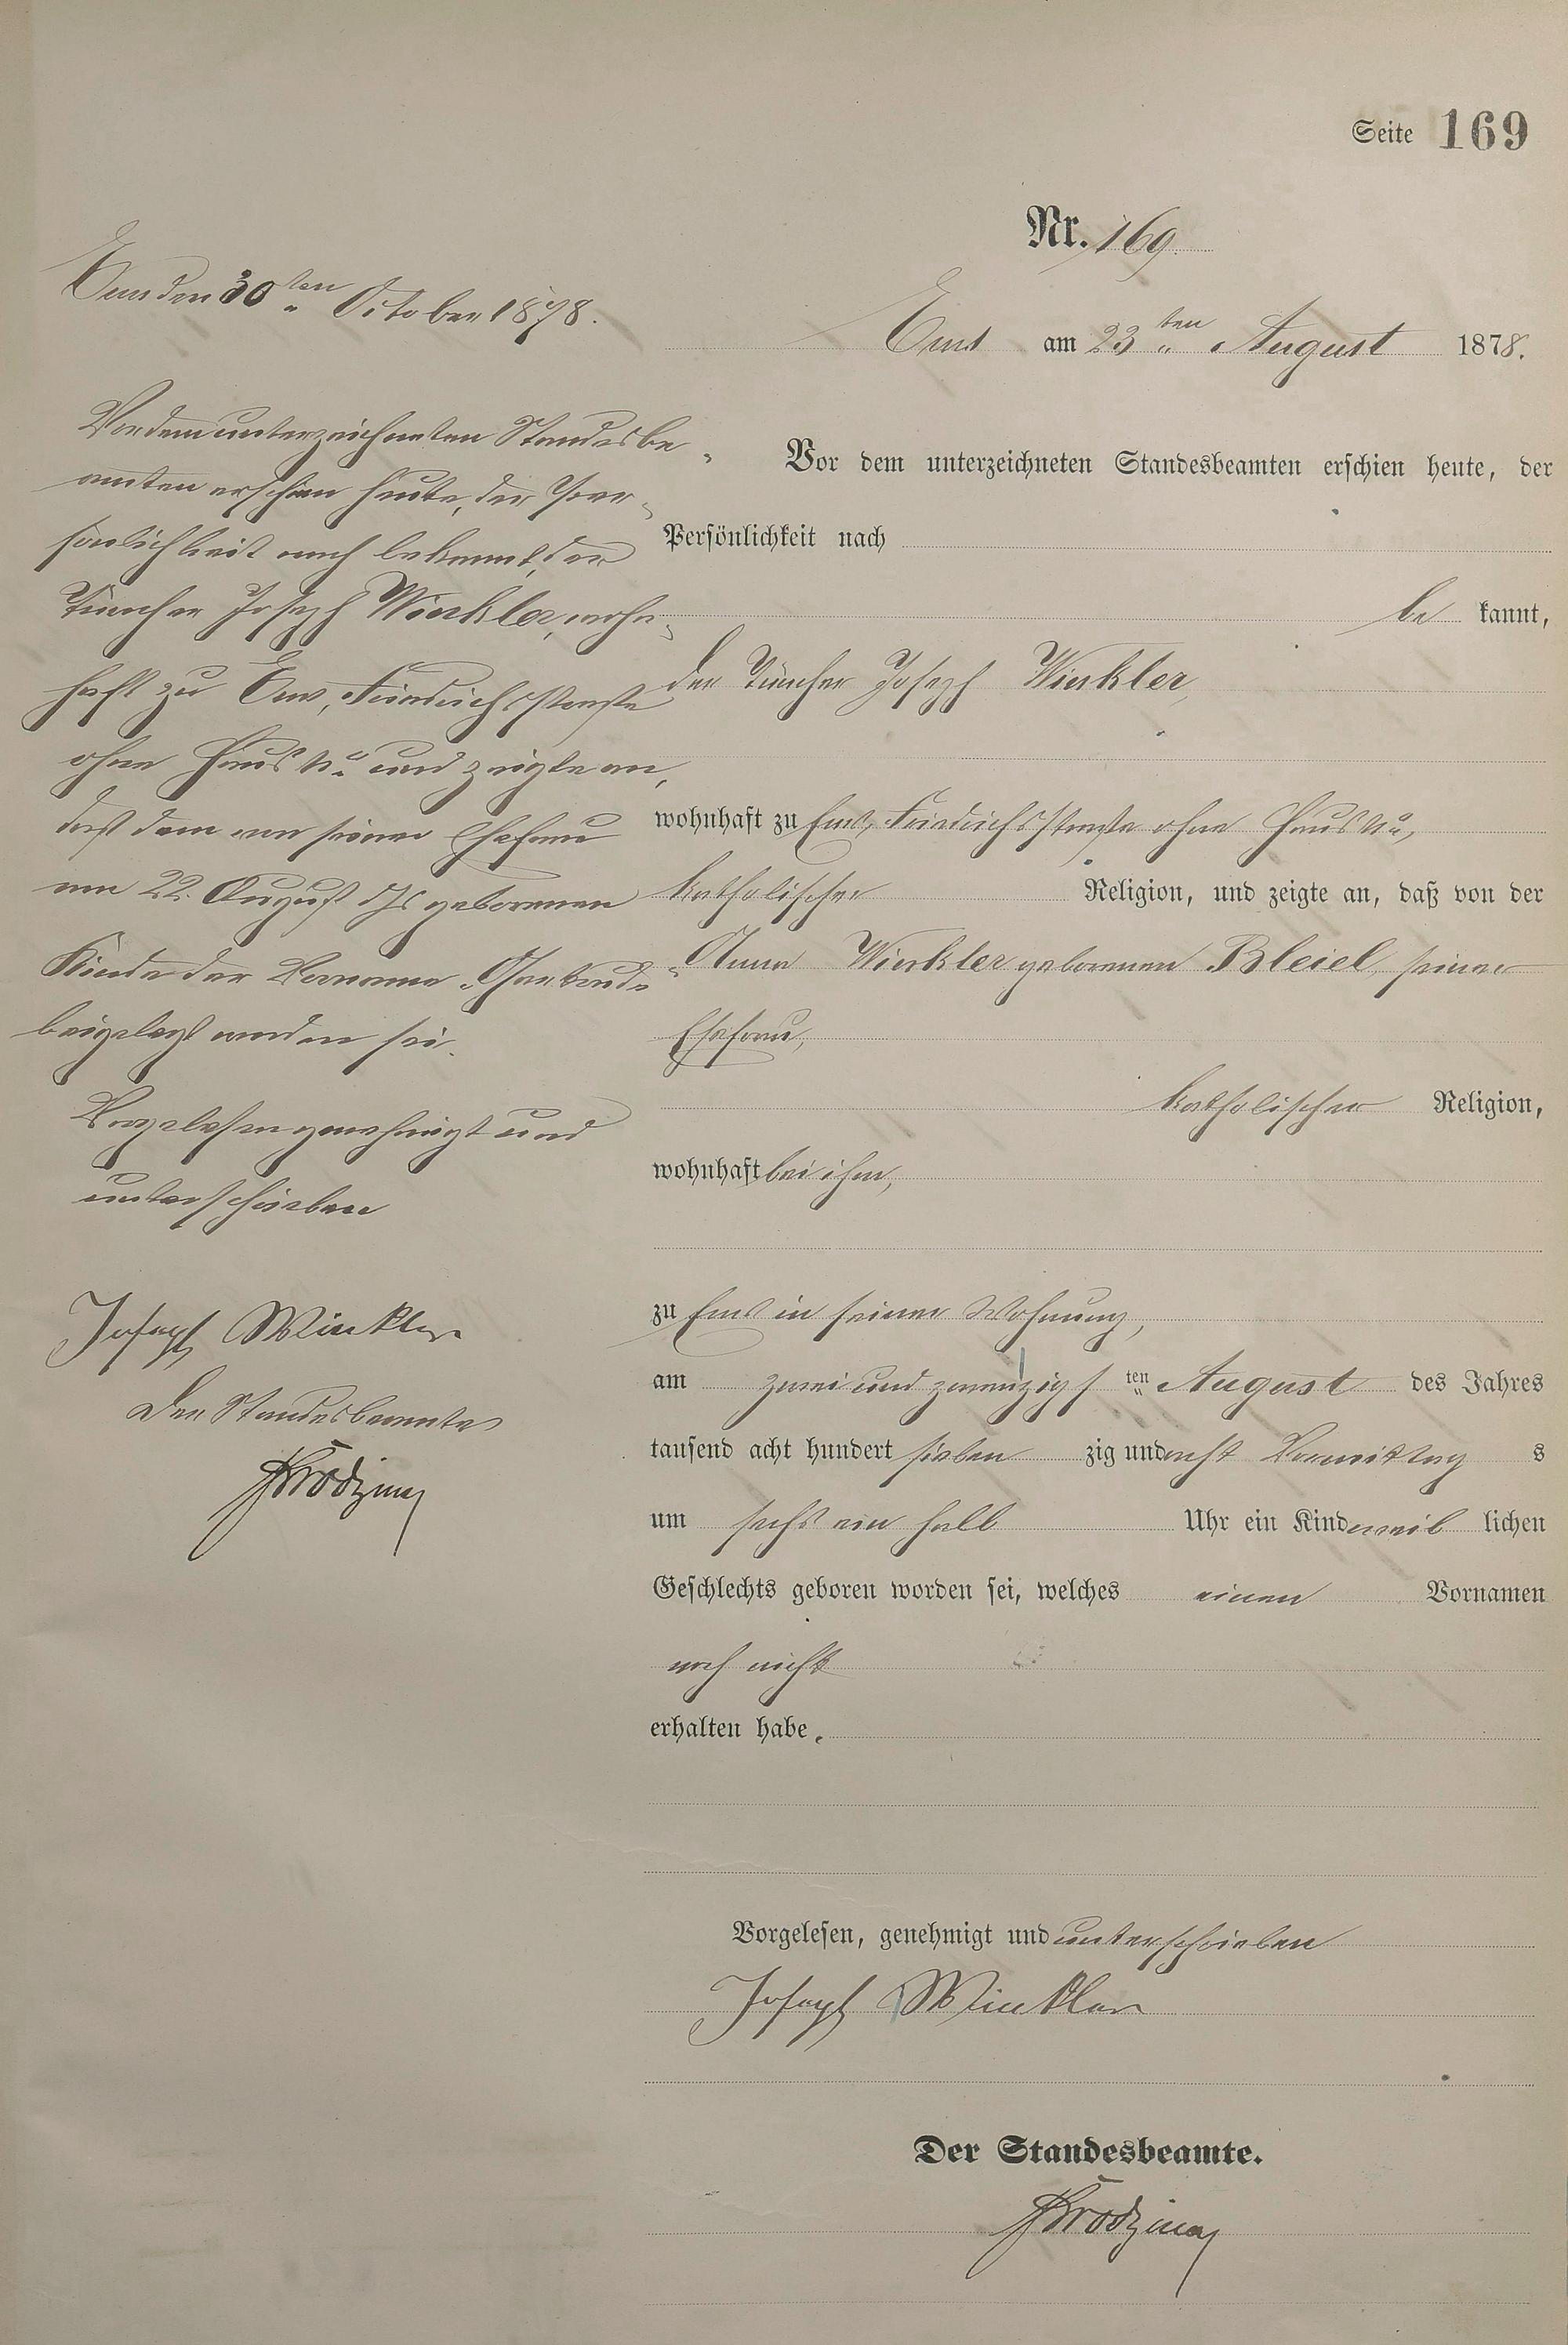 Seite 169
Nr. 169.
Ems am 23ten August 1878.
Vor dem unterzeichneten Standesbeamten erschien heute, der
Persönlichkeit nach
be kannt,
der Tüncher Joseph Winkler,
wohnhaft zu Ems, Friedrichsstraße ohne Haus No,
katholischer Religion, und zeigte an, daß von der
Anna Winkler geborenen Bleiel, seiner
Ehefrau,
katholischer Religion,
wohnhaft bei ihm,
zu Ems in seiner Wohnung,
am zwei und zwanzigsten August des Jahres
tausend acht hundert sieben zig und acht Vormittag s
um sechs ein halb Uhr ein Kind weib lichen
Geschlechts geboren worden sei, welches einen Vornamen
noch nicht
erhalten habe.
Vorgelesen, genehmigt und unterschrieben
Joseph Winkler
Der Standesbeamte.
Ems den 30ten October 1878.
Vor dem unterzeichneten Standesbe-
amten erschien heute, der Per-
sönlichkeit nach bekannt, der
Tüncher Joseph Winkler, wohn-
haft zu Ems, Friedrichsstraße
ohne Haus No und zeigte an,
daß dem von seiner Ehefrau
am 22. August d Js geborenen
Kinde der Vorname "Gertrud"
beigelegt worden sei.
Vorgelesen genehmigt und
unterschrieben
Joseph Winkler
Der Standesbeamte